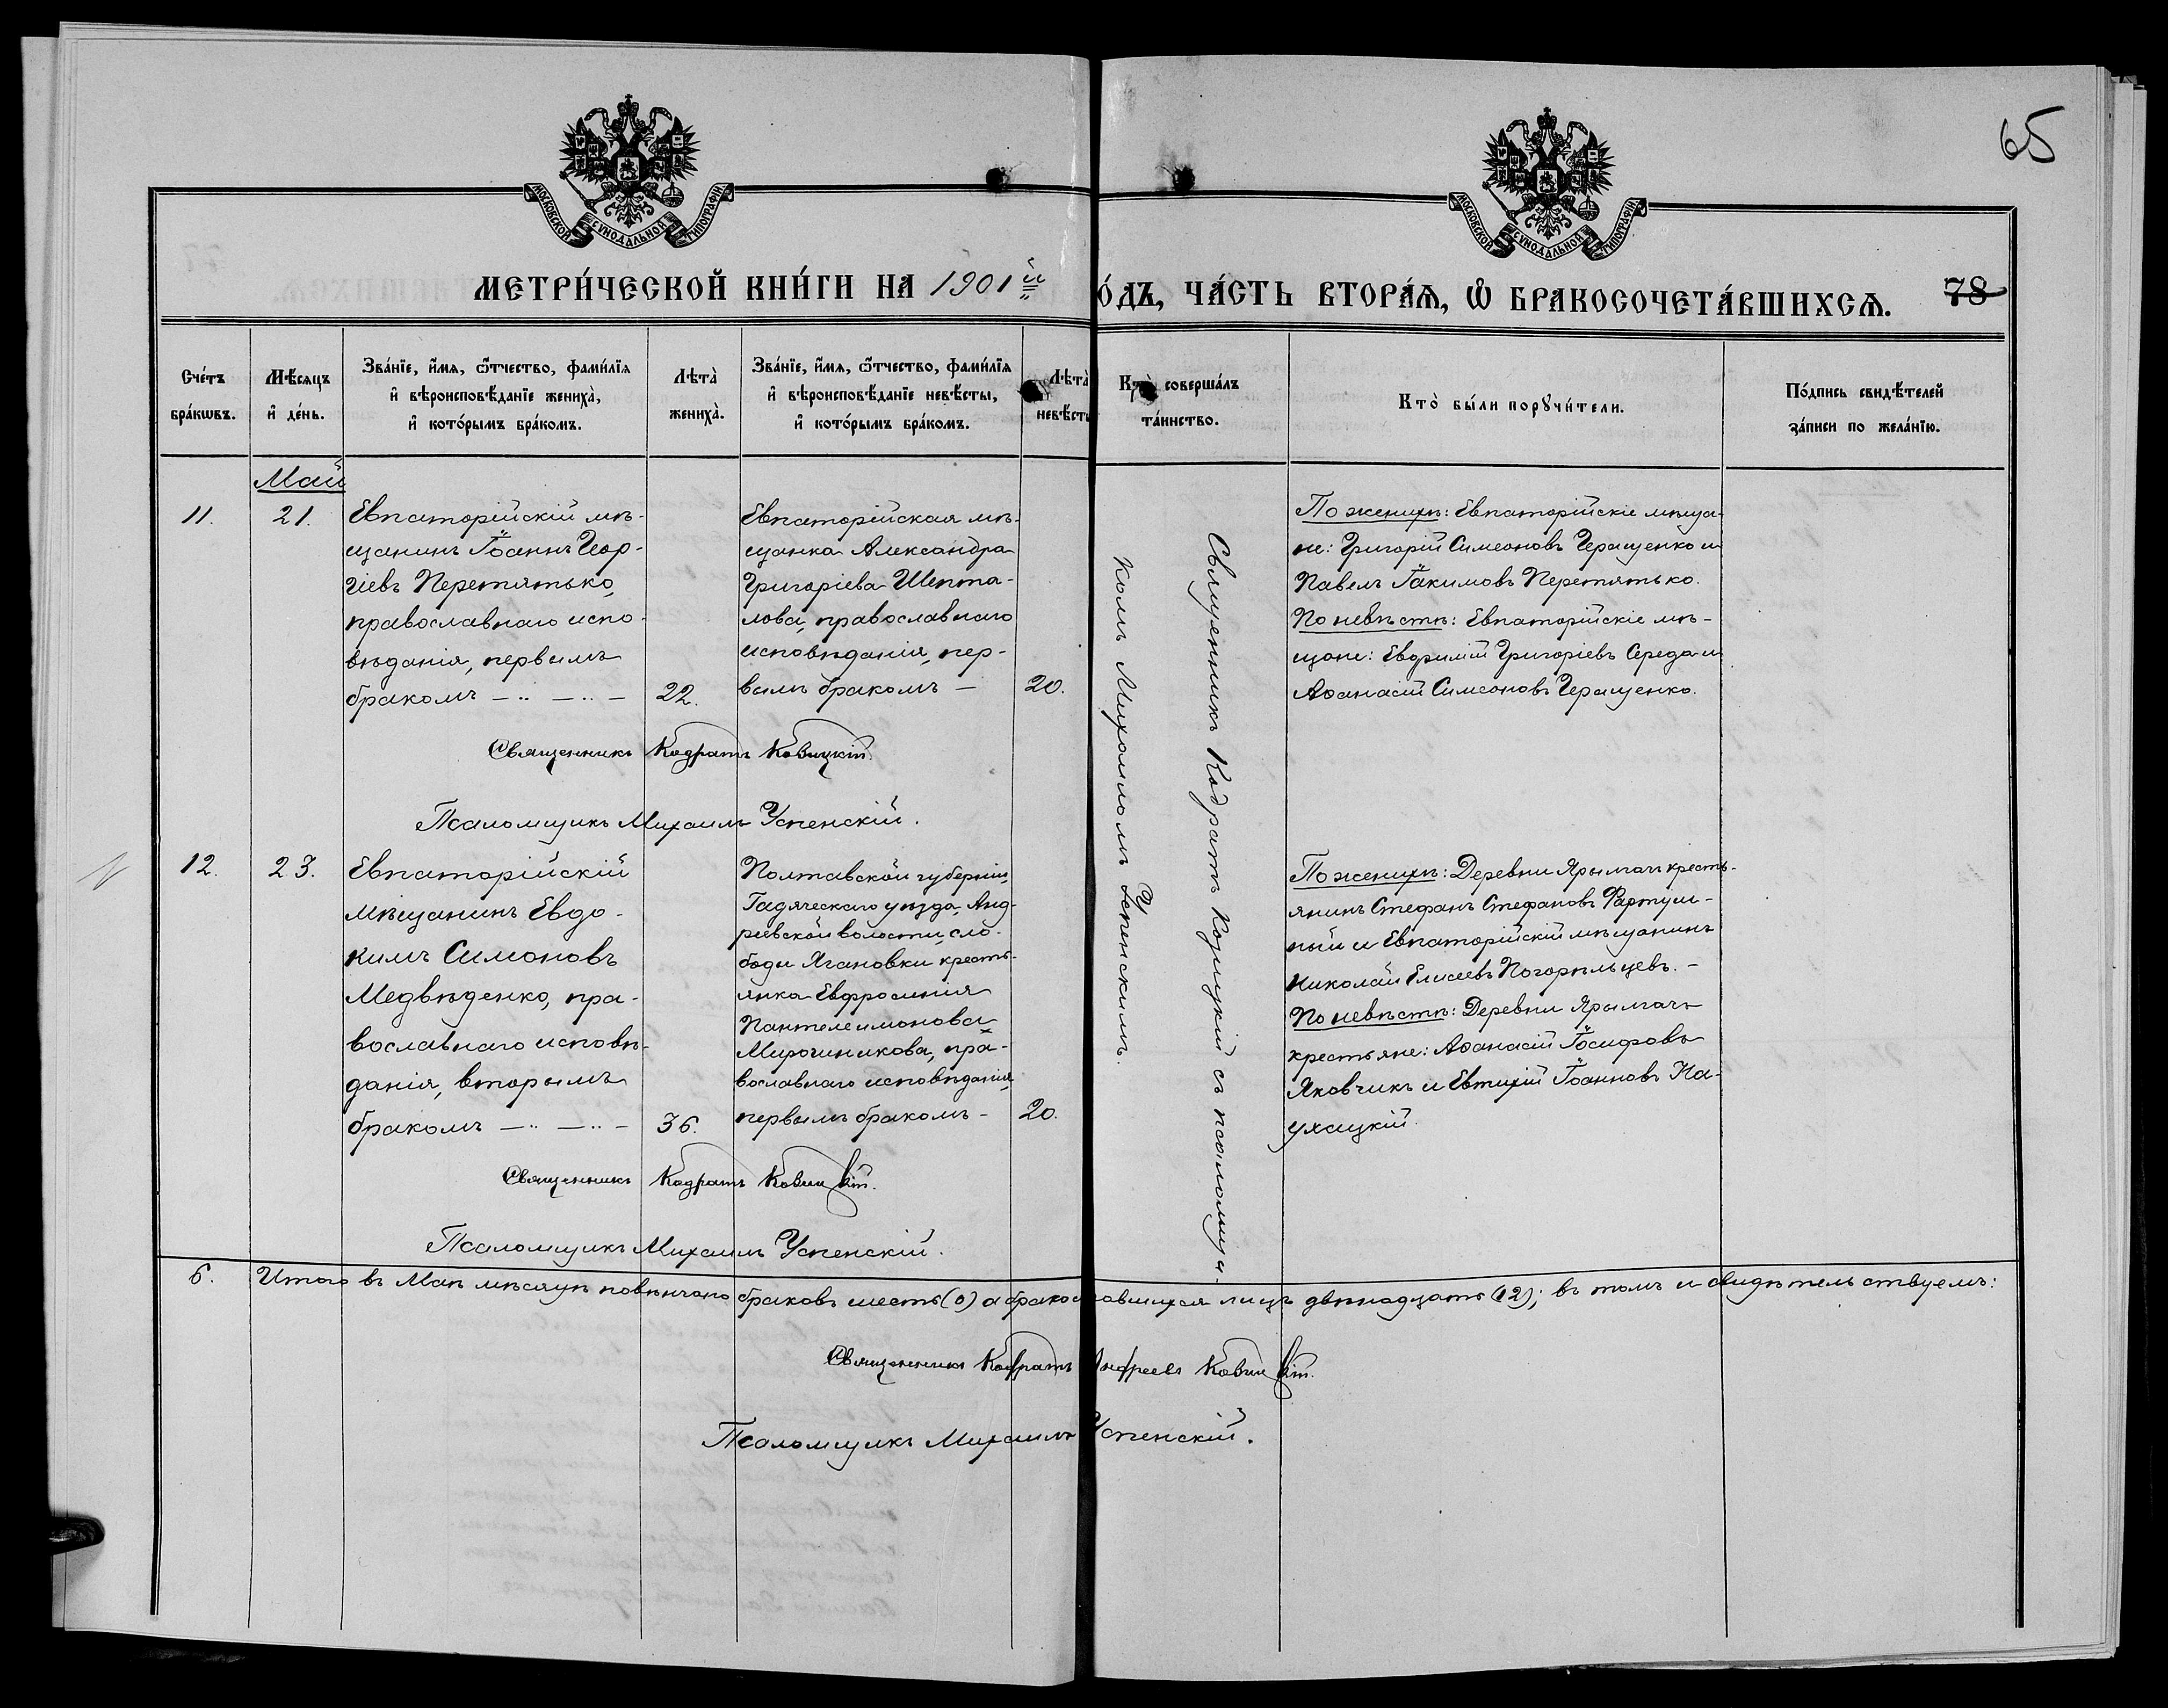 65
МОСКОВСКОЙ СѴНОДАЛЬНОЙ ТИПОГРАФІИ
МОСКОВСКОЙ СѴНОДАЛЬНОЙ ТИПОГРАФІИ
МЕТРИ́ЧЕСКОЙ КНИ́ГИ НА 1901й
О́ДЪ, ЧА́СТЬ ВТОРА́Я, Ѽ БРАКОСОЧЕТА́ВШИХСѦ.
78
Сче́тъ
бра́кѡвъ.
Мѣ́сяцъ
и҆ де́нь.
Зва́нїе, и҆́мя, ѻ҆́тчество, фами́лїя
и҆ вѣроисповѣ́данїе жениха̀,
и҆ кото́рымъ бра́комъ.
Лѣта̀
жениха̀.
Зва́нїе, и҆́мя, ѻ҆́тчество, фами́лїя
и҆ вѣроисповѣ́данїе невѣ́сты,
и҆ кото́рымъ бра́комъ.
Лѣта̀
невѣ́сты
Кто̀ соверша́лъ
та́инство.
Кто̀ бы́ли порꙋчи́тели.
По́дпись свидѣ́телей
за́писи по жела́нїю.
Май
11.
21.
Евпаторійскій мѣ-
щанинъ Іоаннъ Геор-
гіевъ Перетятько,
православнаго испо-
вѣданія, первымъ
бракомъ — .. — .. —
22.
Евпаторійская мѣ-
щанка Александра
Григоріева Шепта-
лова, православнаго
исповѣданія, пер-
вымъ бракомъ —
20.
Священникъ Кодратъ Козицкій с псаломщи-
комъ Михаиломъ Успенскимъ.
По женихѣ: Евпаторійскіе мѣща-
не: Григорій Симеоновъ Геращенко и
Павелъ Іакимовъ Перетятько.
По невѣстѣ: Евпаторійскіе мѣ-
щане: Евфимій Григоріевъ Середа и
Аѳанасій Симеоновъ Геращенко.
Священникъ Кодратъ Козицкій
Псаломщикъ Михаилъ Успенскій.
12.
23.
Евпаторійскій
мѣщанинъ Евдо-
кимъ Симоновъ
Медвѣденко, пра-
вославнаго исповѣ-
данія, вторымъ
бракомъ — .. — .. —
36.
Полтавской губерніи,
Гадяческаго уѣзда, Анд-
реевской волости, сло-
боды Ягановки кресть-
янка Евфросинія
Пантелеимонова
Мирошникова, пра-
вославнаго исповѣданія,
первымъ бракомъ —
20.
По женихѣ: Деревни Ярымачъ кресть-
янинъ Стефанъ Стефановъ Фартуш-
ный и Евпаторійскій мѣщанинъ
Николай Елисеевъ Погорѣльцевъ. —
По невѣстѣ: Деревни Ярымачъ
крестьяне: Аѳанасій Іосифовъ
Яковчикъ и Евтихій Іоанновъ На-
ухацкій.
Священникъ Кодратъ Козицкій.
Псаломщикъ Михаилъ Успенскій.
6. Итого въ Маѣ мѣсяцѣ повѣнчано браковъ шесть (6) а брако авшихся лицъ двѣнадцать (12); въ томъ и свидѣтельствуемъ:
Священникъ Кодратъ Андреевъ Козицкій.
Псаломщикъ Михаилъ Успенскій.